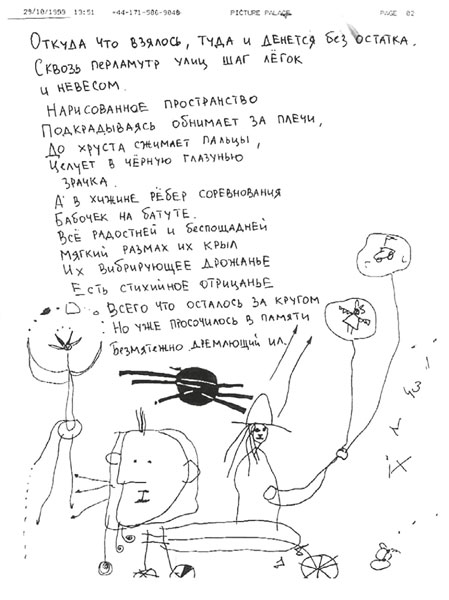 29/10/1999 13:51 +44-171-586-9046 PICTURE PALACE PAGE 02
Откуда что взялось, туда и денется без остатка.
Сквозь перламутр улиц шаг лёгок
и невесом.
Нарисованное пространство
Подкрадываясь обнимает за плечи,
До хруста сжимает пальцы,
Целует в чёрную глазунью
зрачка.
А в хижине рёбер соревнования
Бабочек на батуте.
Всё радостней и беспощадней
Мягкий размах их крыл
Их вибрирующее дрожанье
Есть стихийное отрицанье
Всего что осталось за кругом
Но уже просочилось в памяти
Безмятежно дремлющий ил.